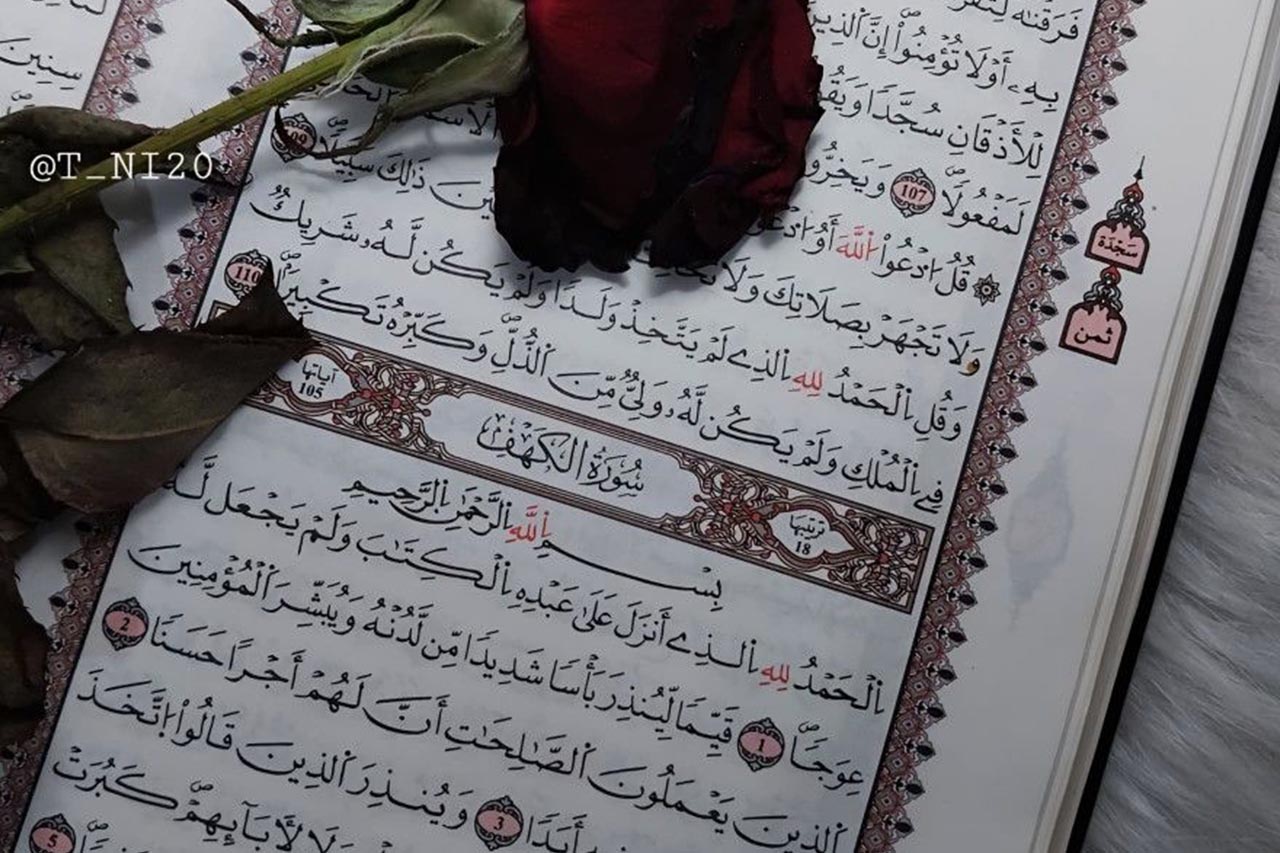 @T_NI20
سِنِينَ
فَرَقْنَٰهُ
بِهِۦٓ أَوْ لَا تُؤْمِنُوٓاْ إِنَّ ٱلذِينَ
لِلْأَذْقَانِ سُجَّدًا وَيَقُ
لَمَفْعُولًا 107 وَيَخِرُّو
109
قُلُ اُدْعُواْ اللَّهَ أَوُ اُدْعُ
وَلَا تَجْهَرْ بِصَلَاتِكَ وَلَا تُخَافِتْ
ذَٰلِكَ سَبِيلًا
وَقُلِ اِلْحَمْدُ لِلهِ اِلذِے لَمْ يَتَّخِذْ وَلَدًا وَلَمْ يَكُن لَّهُۥ شَرِيكٌ
فِے اِلْمُلْكِ وَلَمْ يَكُن لَّهُۥ وَلِيٌّ مِّنَ اَلذُّلِّ وَكَبِّرْهُ تَكْبِيرًا 110
سَجْدَة
ثمن
ترتيبها 18
سُورَةُ الكَهْف
آياتها 105
بِسْمِ اِللَّهِ اِلرَّحْمَٰنِ اِلرَّحِيمِ
اِلْحَمْدُ لِلهِ اِلذِےٓ أَنزَلَ عَلَىٰ عَبْدِهِ اِلْكِتَٰبَ وَلَمْ يَجْعَل لَّهُ
عِوَجًا 1 قَيِّمًا لِّيُنذِرَ بَأْسًا شَدِيدًا مِّن لَّدُنْهُ وَيُبَشِّرَ اَلْمُؤْمِنِينَ
اَلذِينَ يَعْمَلُونَ اَلصَّٰلِحَٰتِ أَنَّ لَهُمْ أَجْرًا حَسَنًا 2
أَبَدًا 3 وَيُنذِرَ اَلذِينَ قَالُواْ اُتَّخَذَ
وَلَا لِأَبَآئِهِمْ كَبُرَتْ
5